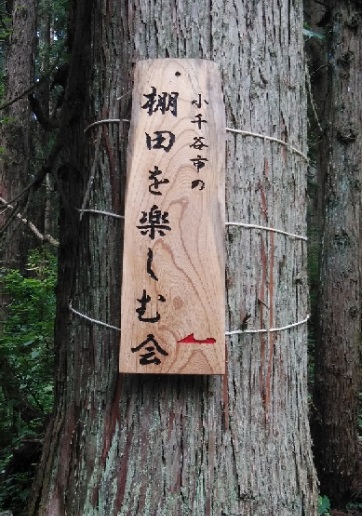 小千谷市の
棚田を楽しむ会